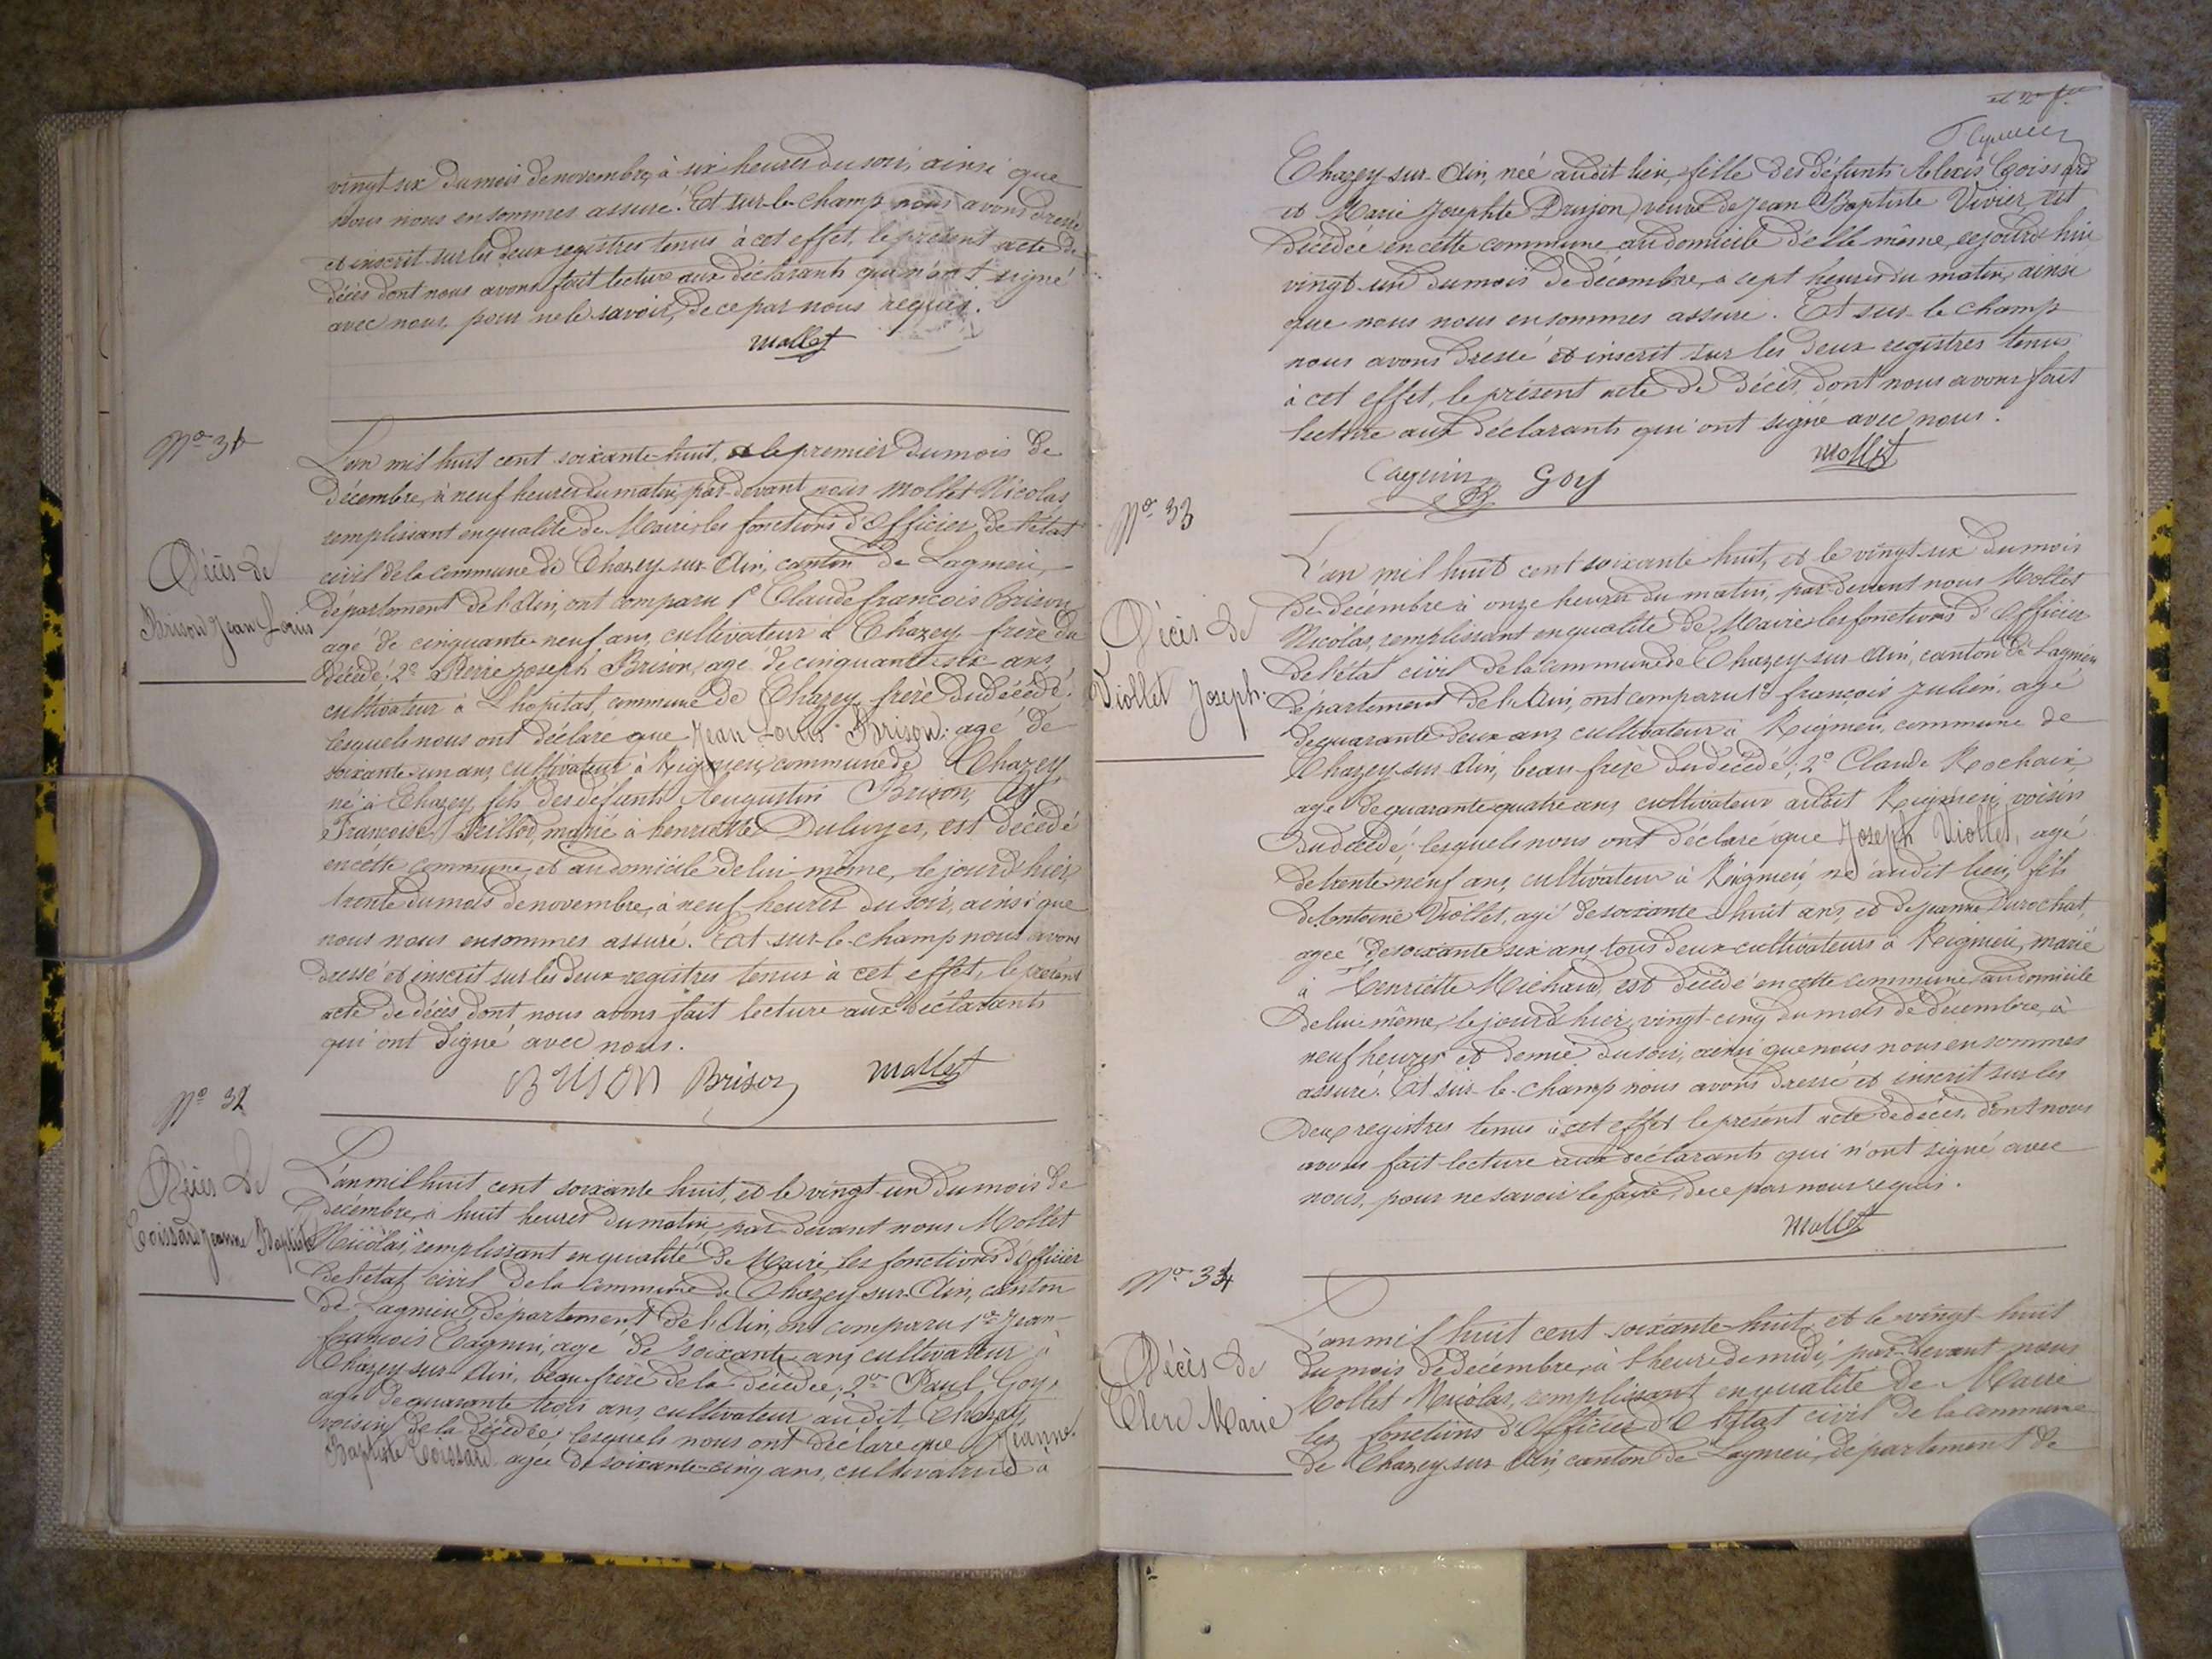 vingt six du mois de novembre, à six heures du soir, ainsi que
nous nous en sommes assuré. Et sur-le-champ nous avons dressé
et inscrit sur les deux registres tenus à cet effet, le présent acte de
décès dont nous avons fait lecture aux déclarants qui n'ont signé
avec nous, pour ne le savoir, de ce par nous requis.
Mollet
No 31
Décès de
Brison Jean Louis
L'an mil huit cent soixante-huit, et le premier du mois de
décembre, à neuf heures du matin, par-devant nous Mollet Nicolas,
remplissant en qualité de Maire, les fonctions d'Officier de l'état
civil de la commune de Chazey-sur-Ain, canton de Lagnieu,
département de l'Ain, ont comparu 1o Claude françois Brison
agé de cinquante-neuf ans, cultivateur à Chazey, frère du
décédé; 2o Pierre joseph Brison, agé de cinquante-six ans,
cultivateur à L'hopital, commune de Chazey, frère du décédé;
lesquels nous ont déclaré que Jean Louis Brison, agé de
soixante-un ans, cultivateur à Rignieu, commune de Chazey,
né à Chazey, fils des défunts Augustin Brison, et
Françoise Peillod, marié à henriette, est décédé
en cette commune, et au domicile de lui-même, le jourd'hier
trente du mois de novembre, à neuf heures du soir, ainsi que
nous nous en sommes assuré. Et sur-le-champ nous avons
dressé et inscrit sur les deux registres tenus à cet effet, le présent
acte de décès dont nous avons fait lecture aux déclarants
qui ont signé avec nous.
BRISON Brison Mollet
No 32
Décès de
Coissard Jeanne Baptiste
L'an mil huit cent soixante huit, et le vingt-un du mois de
décembre, à huit heures du matin, par-devant nous Mollet
Nicolas, remplissant en qualité de Maire, les fonctions d'Officier
de l'état civil de la commune de Chazey-sur-Ain, canton
de Lagnieu, département de l'Ain, ont comparu 1o Jean-
françois Cagnin, agé de soixante ans, cultivateur à
Chazey-sur-Ain, beau-frère de la décédée; 2o Paul Goy,
agé de quarante trois ans, cultivateur audit Chazey,
voisin de la décédée; lesquels nous ont déclaré que Jeanne
Baptiste Coissard agée de soixante-cinq ans, cultivatrice à
et
Chazey-sur-Ain, née audit lieu, fille des défunts Alexis Coissard
et Marie Josephte Drujon, veuve de Jean Baptiste Vivier, est
décédée en cette commune au domicile d'elle même, cejourd'hui
vingt-un du mois de décembre, à sept heures du matin, ainsi
que nous nous en sommes assuré. Et sur-le-champ
nous avons dressé et inscrit sur les deux registres tenus
à cet effet, le présent acte de décès, dont nous avons fait
lecture aux déclarants qui ont signé avec nous.
Cagnin Goy Mollet
No 33
Décès de
Viollet Joseph.
L'an mil huit cent soixante huit, et le vingt six du mois
de décembre à onze heures du matin, par-devant nous Mollet
Nicolas, remplissant en qualité de Maire les fonctions d'Officier
de l'état civil de la commune de Chazey-sur-Ain, canton de Lagnieu
département de l'Ain, ont comparu 1o françois Julien, agé
de quarante deux ans, cultivateur à Rignieu, commune de
Chazey-sur-Ain, beau-frère du décédé; 2o Claude Rochaix,
agé de quarante quatre ans, cultivateur audit Rignieu, voisin
du décédé; lesquels nous ont déclaré que Joseph Viollet, agé
de trente-neuf ans, cultivateur à Rignieu, né audit lieu, fils
de Antoine Viollet, agé de soixante-huit ans, et de jeanne Durochat,
agée de soixante six ans, tous deux cultivateurs à Rignieu, marié
à Henriette Michaud, est décédé en cette commune, au domicile
de lui-même, le jourd'hier, vingt-cinq du mois de décembre, à
neuf heures et demie du soir, ainsi que nous nous en sommes
assuré. Et sur-le-champ nous avons dressé et inscrit sur les
deux registres tenus à cet effet le présent acte de décès, dont nous
avons fait lecture aux déclarants qui n'ont signé avec
nous, pour ne savoir le faire, de ce par nous requis.
Mollet
No 34
Décès de
Clerc Marie
L'an mil huit cent soixante-huit, et le vingt-huit
du mois de décembre, à l'heure de midi, par-devant nous
Mollet Nicolas, remplissant en qualité de Maire
les fonctions d'Officier d'état civil de la commune
de Chazey-sur-Ain, canton de Lagnieu, département de